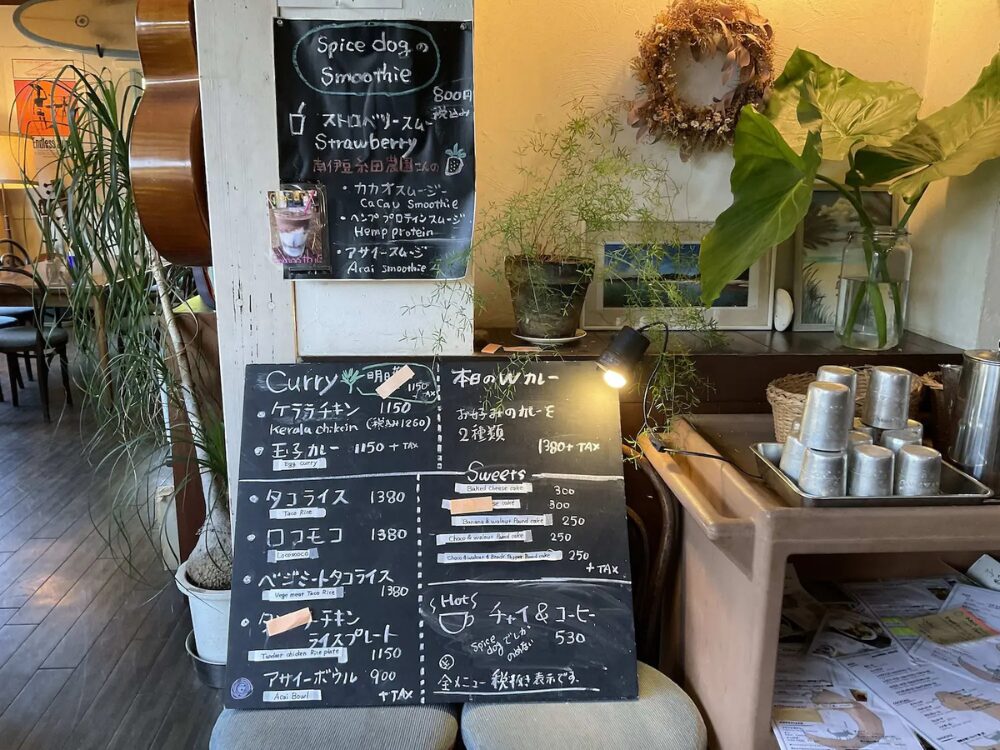 Spice dog の
Smoothie
800円
税込み
ストロベリースムー
Strawberry
南伊豆
農園さんの
・カカオスムージー
Cacau Smoothie
・ヘンププロテインスムージ
Hemp protein
・アサイースムージ
Acai Smoothie
Endless
Curry
1150
TAX
・ケララチキン 1150
Kerala chikein (税込み1260)
・玉子カレー 1150 + TAX
Egg curry
本日のWカレー
お好みのカレーを
2種類
1380+ TAX
・タコライス 1380
Taco Rice
・ロコモコ 1380
Locococo
・ベジミートタコライス
Vege meat Taco Rice 1380
チキン
ライスプレート
Tandoor chicken Rice plate 1150
アサイーボウル 900
Acai Bowl + TAX
Sweets
Baked Cheese cake 300
cake 300
Banana & walnut Pound cake 250
Choco & walnut Pound cake 250
Choco & walnut & Black Pepper Pound cake 250
+ TAX
Hot
チャイ & コーヒー
Spice dogでしか のめない
530
全メニュー 税抜き表示です。